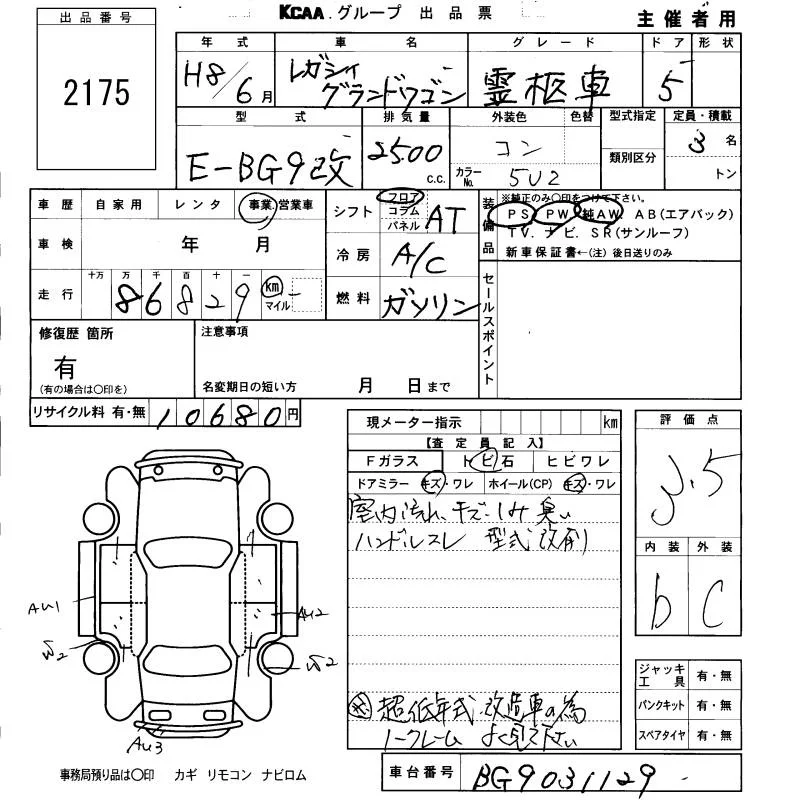 KCAA.グループ 出品票
主催者用
出品番号
2175
年式 車名 グレード ドア 形状
H8/6月 レガシィグランドワゴン 霊柩車 5
型式 排気量 外装色 色替 型式指定 定員・積載
E-BG9改 2500 c.c. コン 類別区分 3名
カラーNo. 5U2 トン
車歴 自家用 レンタ 事業.営業車
シフト フロア コラム パネル AT
装備品
※純正のみ〇印をつけて下さい。
PS PW 純AW. AB(エアバック)
TV. ナビ. SR(サンルーフ)
新車保証書←(注)後日送りのみ
車検 年 月
冷房 A/C
走行 十万 万 千 百 十 一
86829 km マイル
燃料 ガソリン
セールスポイント
修復歴 箇所
有
(有の場合は〇印を)
注意事項
名変期日の短い方 月 日まで
リサイクル料 有・無 10680円
現メーター指示 km
【査定員記入】
Fガラス トビ石 ヒビワレ
ドアミラー キズ・ワレ ホイール(CP) キズ・ワレ
室内汚れ、キズ・しみ 臭い
ハンドルスレ 型式改刻
超低年式 改造車の為
ノークレーム よく見て下さい
評価点
3.5
内装 外装
b C
AU1
AU2
AU3
ジャッキ工具 有・無
パンクキット 有・無
スペアタイヤ 有・無
事務局預り品は〇印 カギ リモコン ナビロム
車台番号 BG9031129